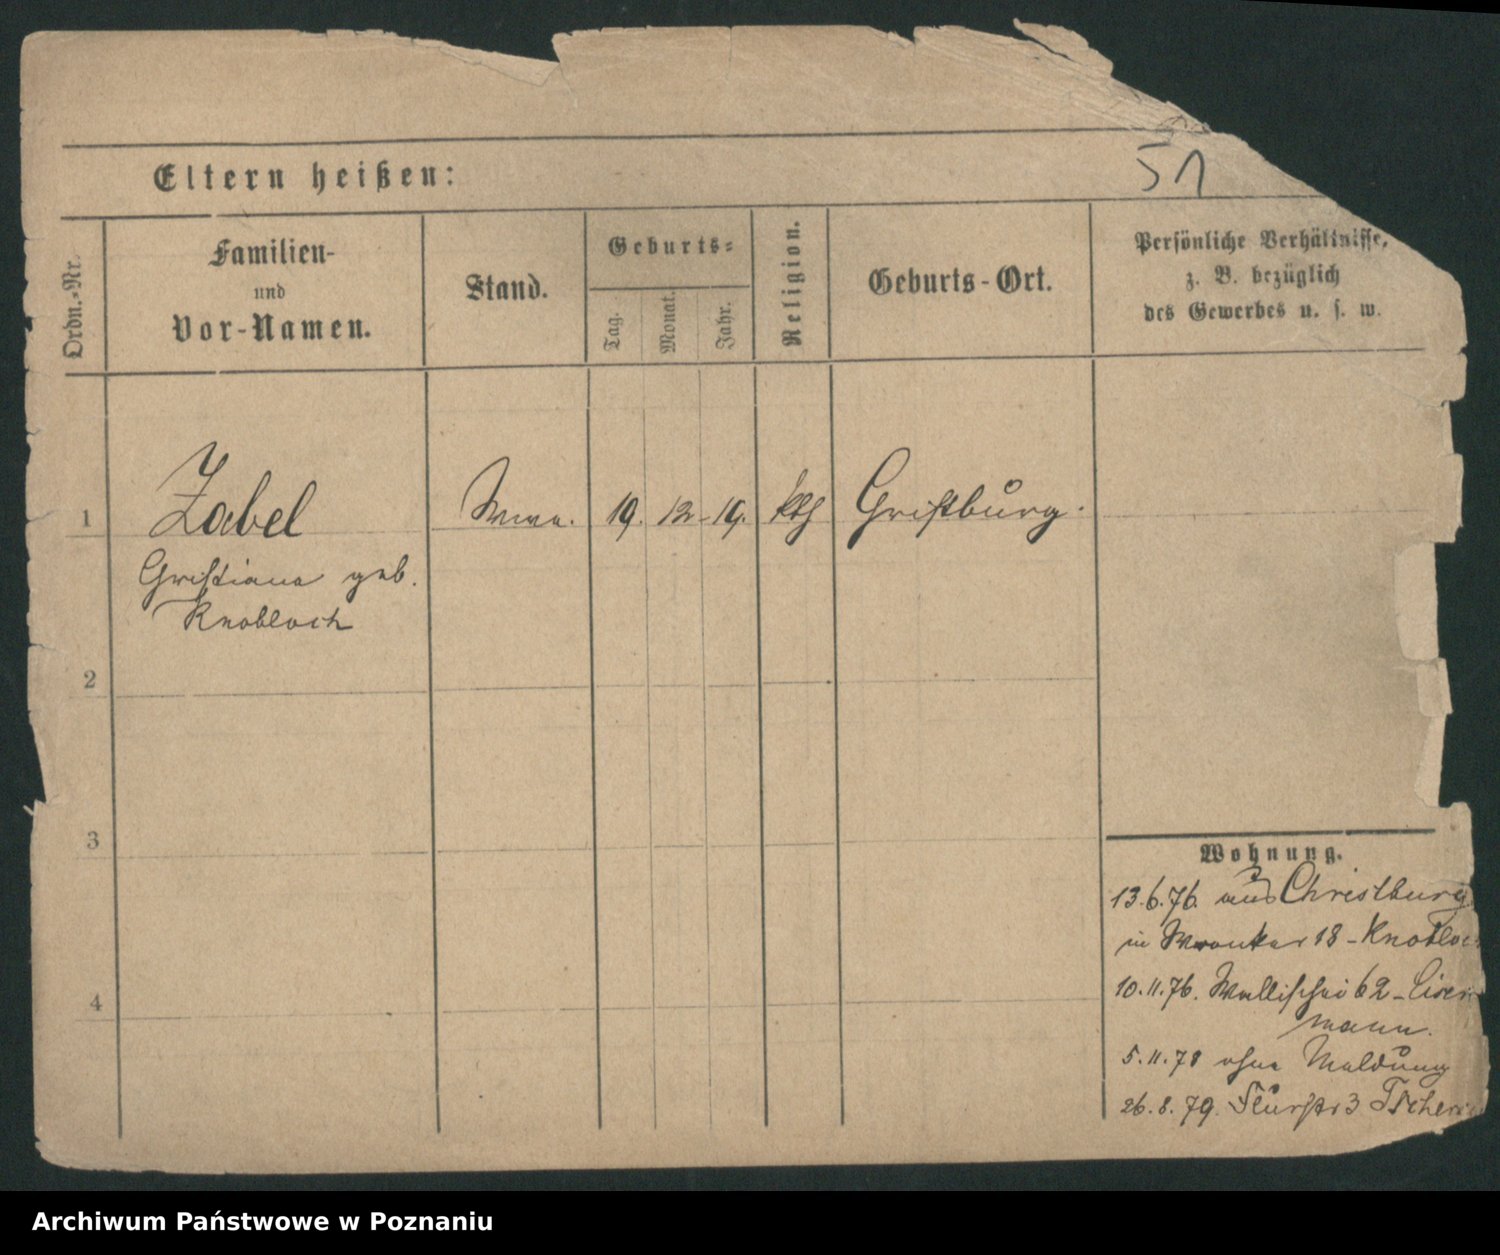 51
Eltern heißen:
Ordn.-Nr.
Familien-
und
Vor-Namen.
Stand.
Geburts-
Tag.
Monat.
Jahr.
Religion.
Geburts-Ort.
Persönliche Verhältnisse,
z. B. bezüglich
des Gewerbes u. s. w.
1
Zabel
Christiana geb.
Knobloch
Wwe.
19. 12. 19.
kth
Christburg.
2
3
4
Wohnung.
13.6.76. aus Christburg
in Wronker 18 - Knobloc
10.11.76. Wallischei 62 - Eiser
mann.
5.11.78 ohne Meldung
26.8.79. Flurstr 3 Tscher
Archiwum Państwowe w Poznaniu